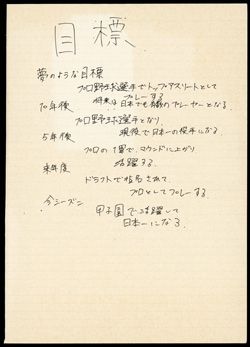 目標
夢のような目標
プロ野球選手でトップアスリートとして
プレーする
10年後
将来は日本でも有数のプレーヤーとなる
プロ野球選手となり
5年後
現役で日本一の投手になる
プロの1軍で、マウンドに上がり
来年度
活躍する
ドラフトで指名されて
プロとしてプレーする
今シーズン
甲子園で活躍して
日本一になる